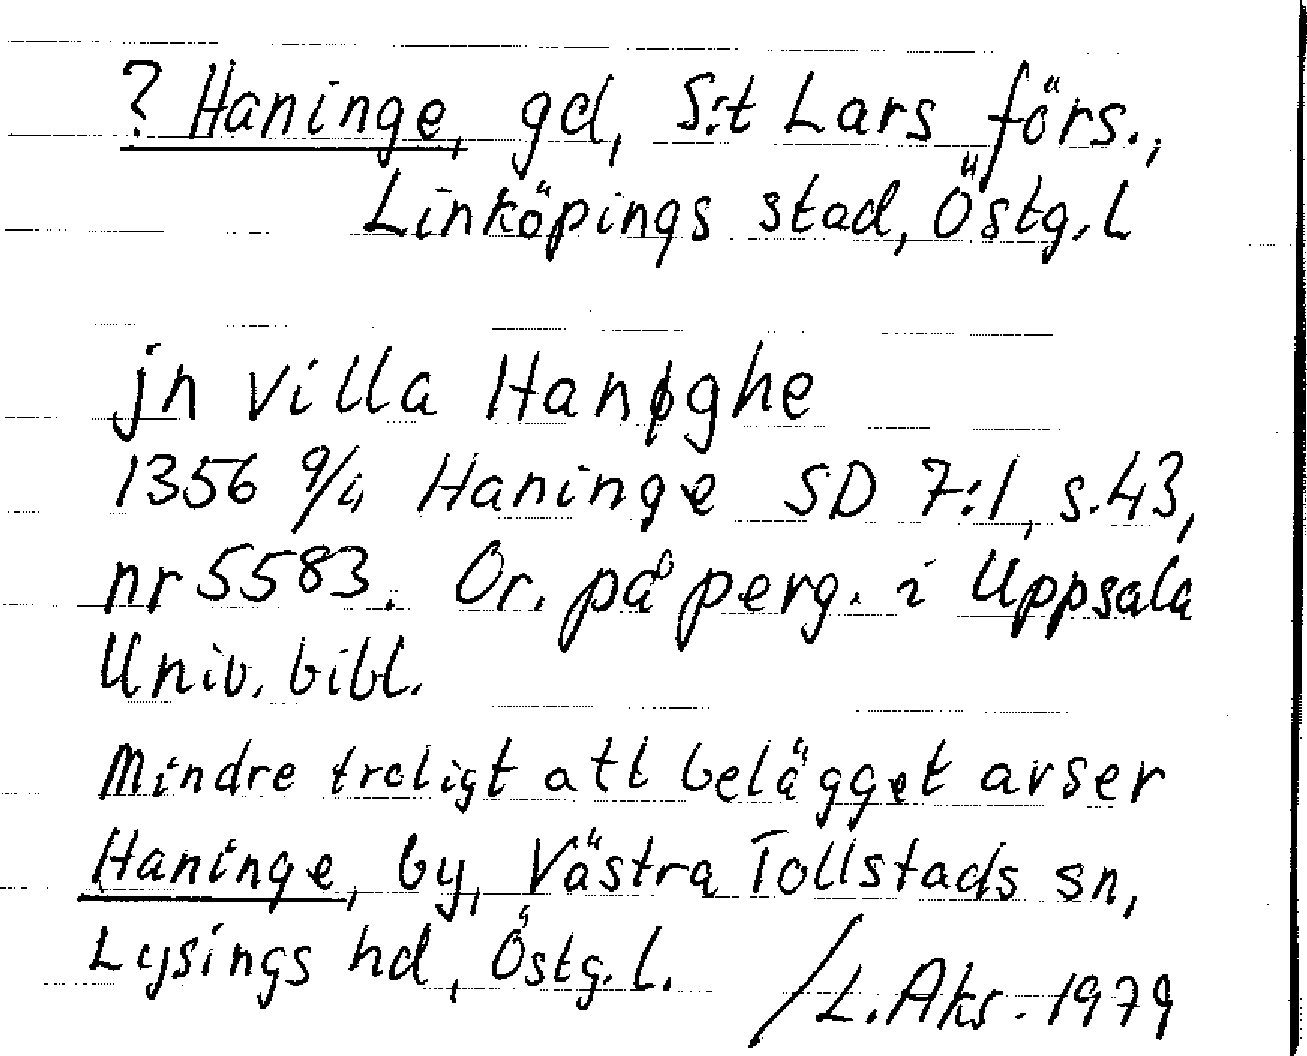 ? Haninge, gd, S:t Lars förs.,
Linköpings stad, Östg.l
jn villa Hanøghe
1356 9/4 Haninge SD 7:1, s.43,
nr 5583. Or. på perg. i Uppsala
Univ. bibl.
Mindre troligt att belägget avser
Haninge, by, Västra Tollstads sn,
Lysings hd, Östg.l.
/L.Aks. 1979